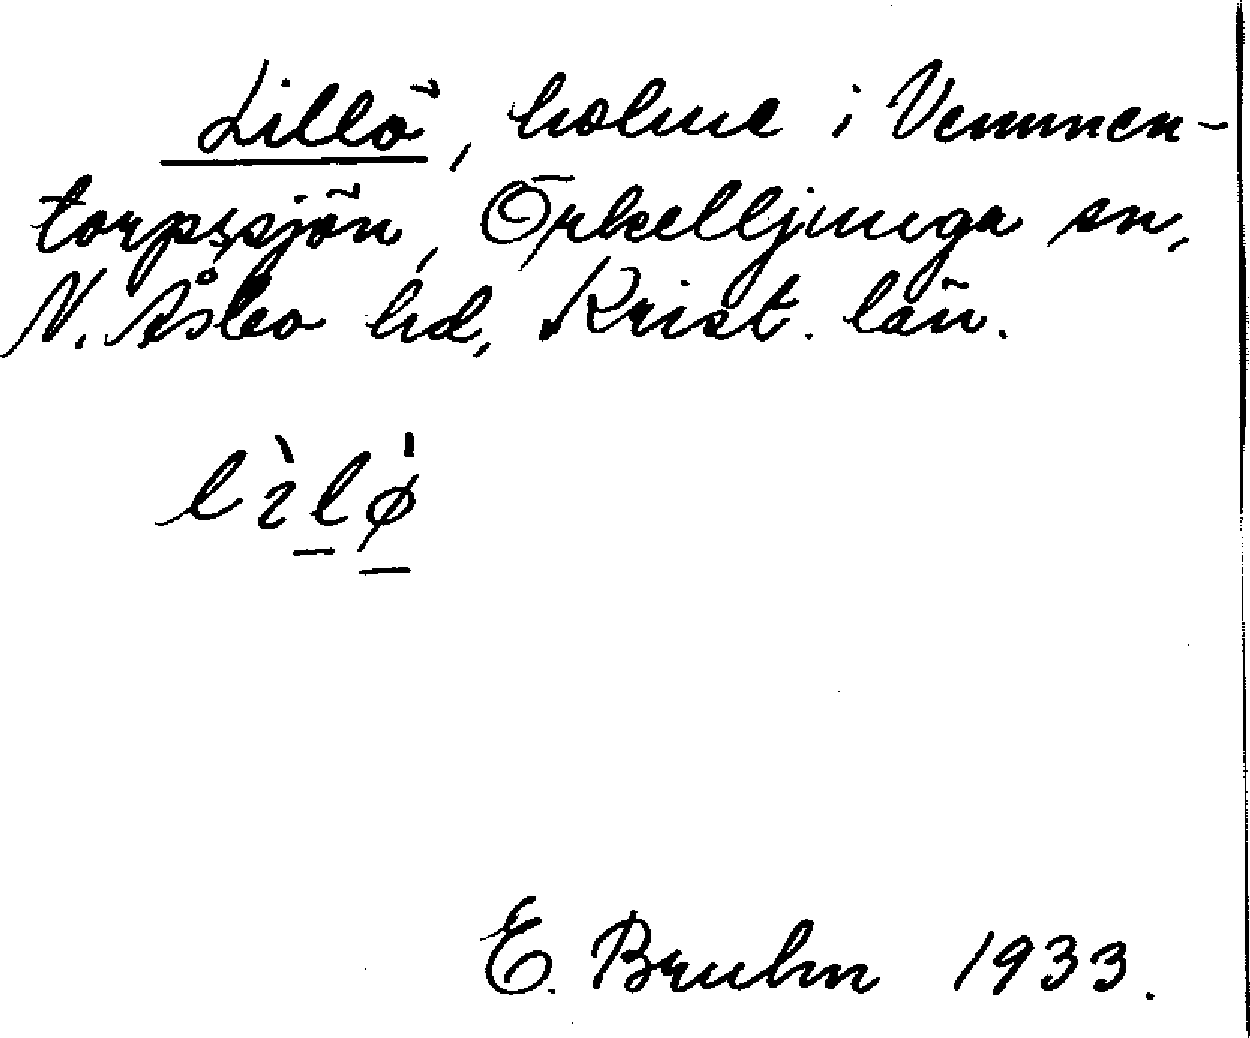 Lillö, holme i Vemmen-
torpssjön, Örkelljunga sn,
N. Åsbo hd, Krist. län.
lìlø̍
E. Bruhn 1933.